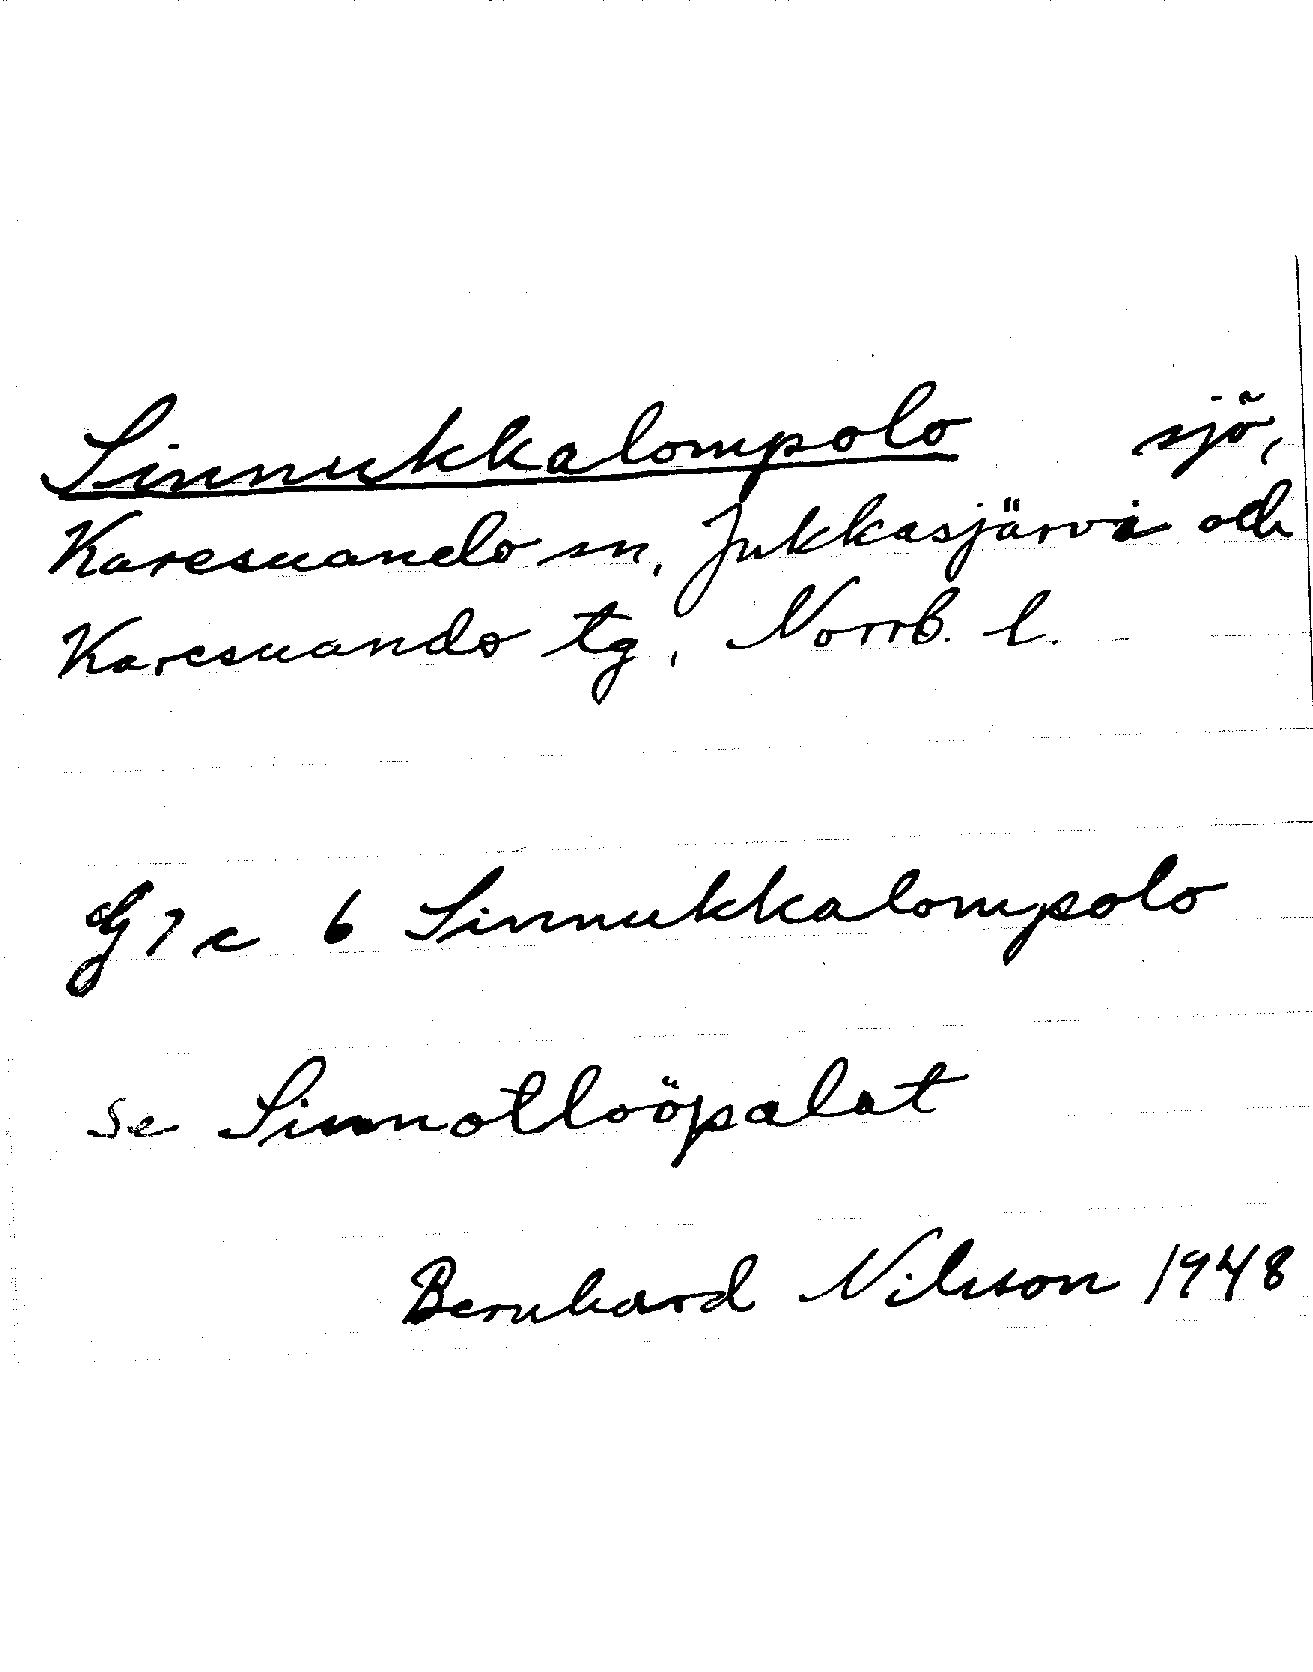 Sinnukkalompolo sjö,
Karesuando sn, Jukkasjärvi och
Karesuando tg, Norrb. l.
G7c 6 Sinnukkalompolo
se Sinnotloöpalat
Bernhard Nilsson 1948